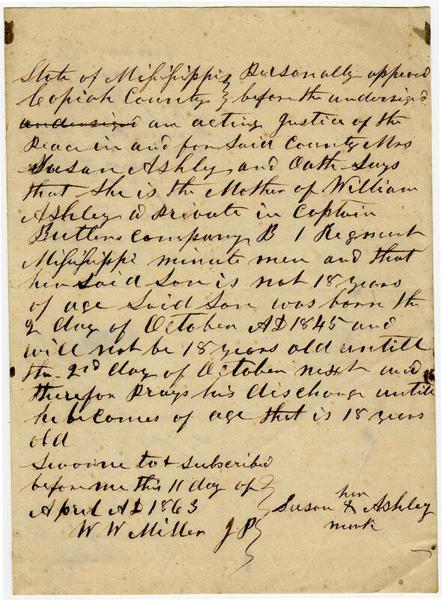 State of Mississippi } Personally appeared
Copiah County } before the undersignd
undersignd an acting Justice of the
Peace in and for Said County Mrs
Susan Ashley and Oath Says
that She is the Mother of William
Ashley a Private in Captain
Butlers Company B 1 Regment
Mississippi minute men and that
her Said Son is not 18 years
of age Said Son was born the
2 day of October AD 1845 and
will not be 18 years old untill
the 2nd day of October next and
therefor Prays his discharge untill
he becomes of age that is 18 years
old
Swoorne to & Subscribd
before me this 11 day of
April AD 1863
W W Miller J P
her
Susan X Ashley
mark